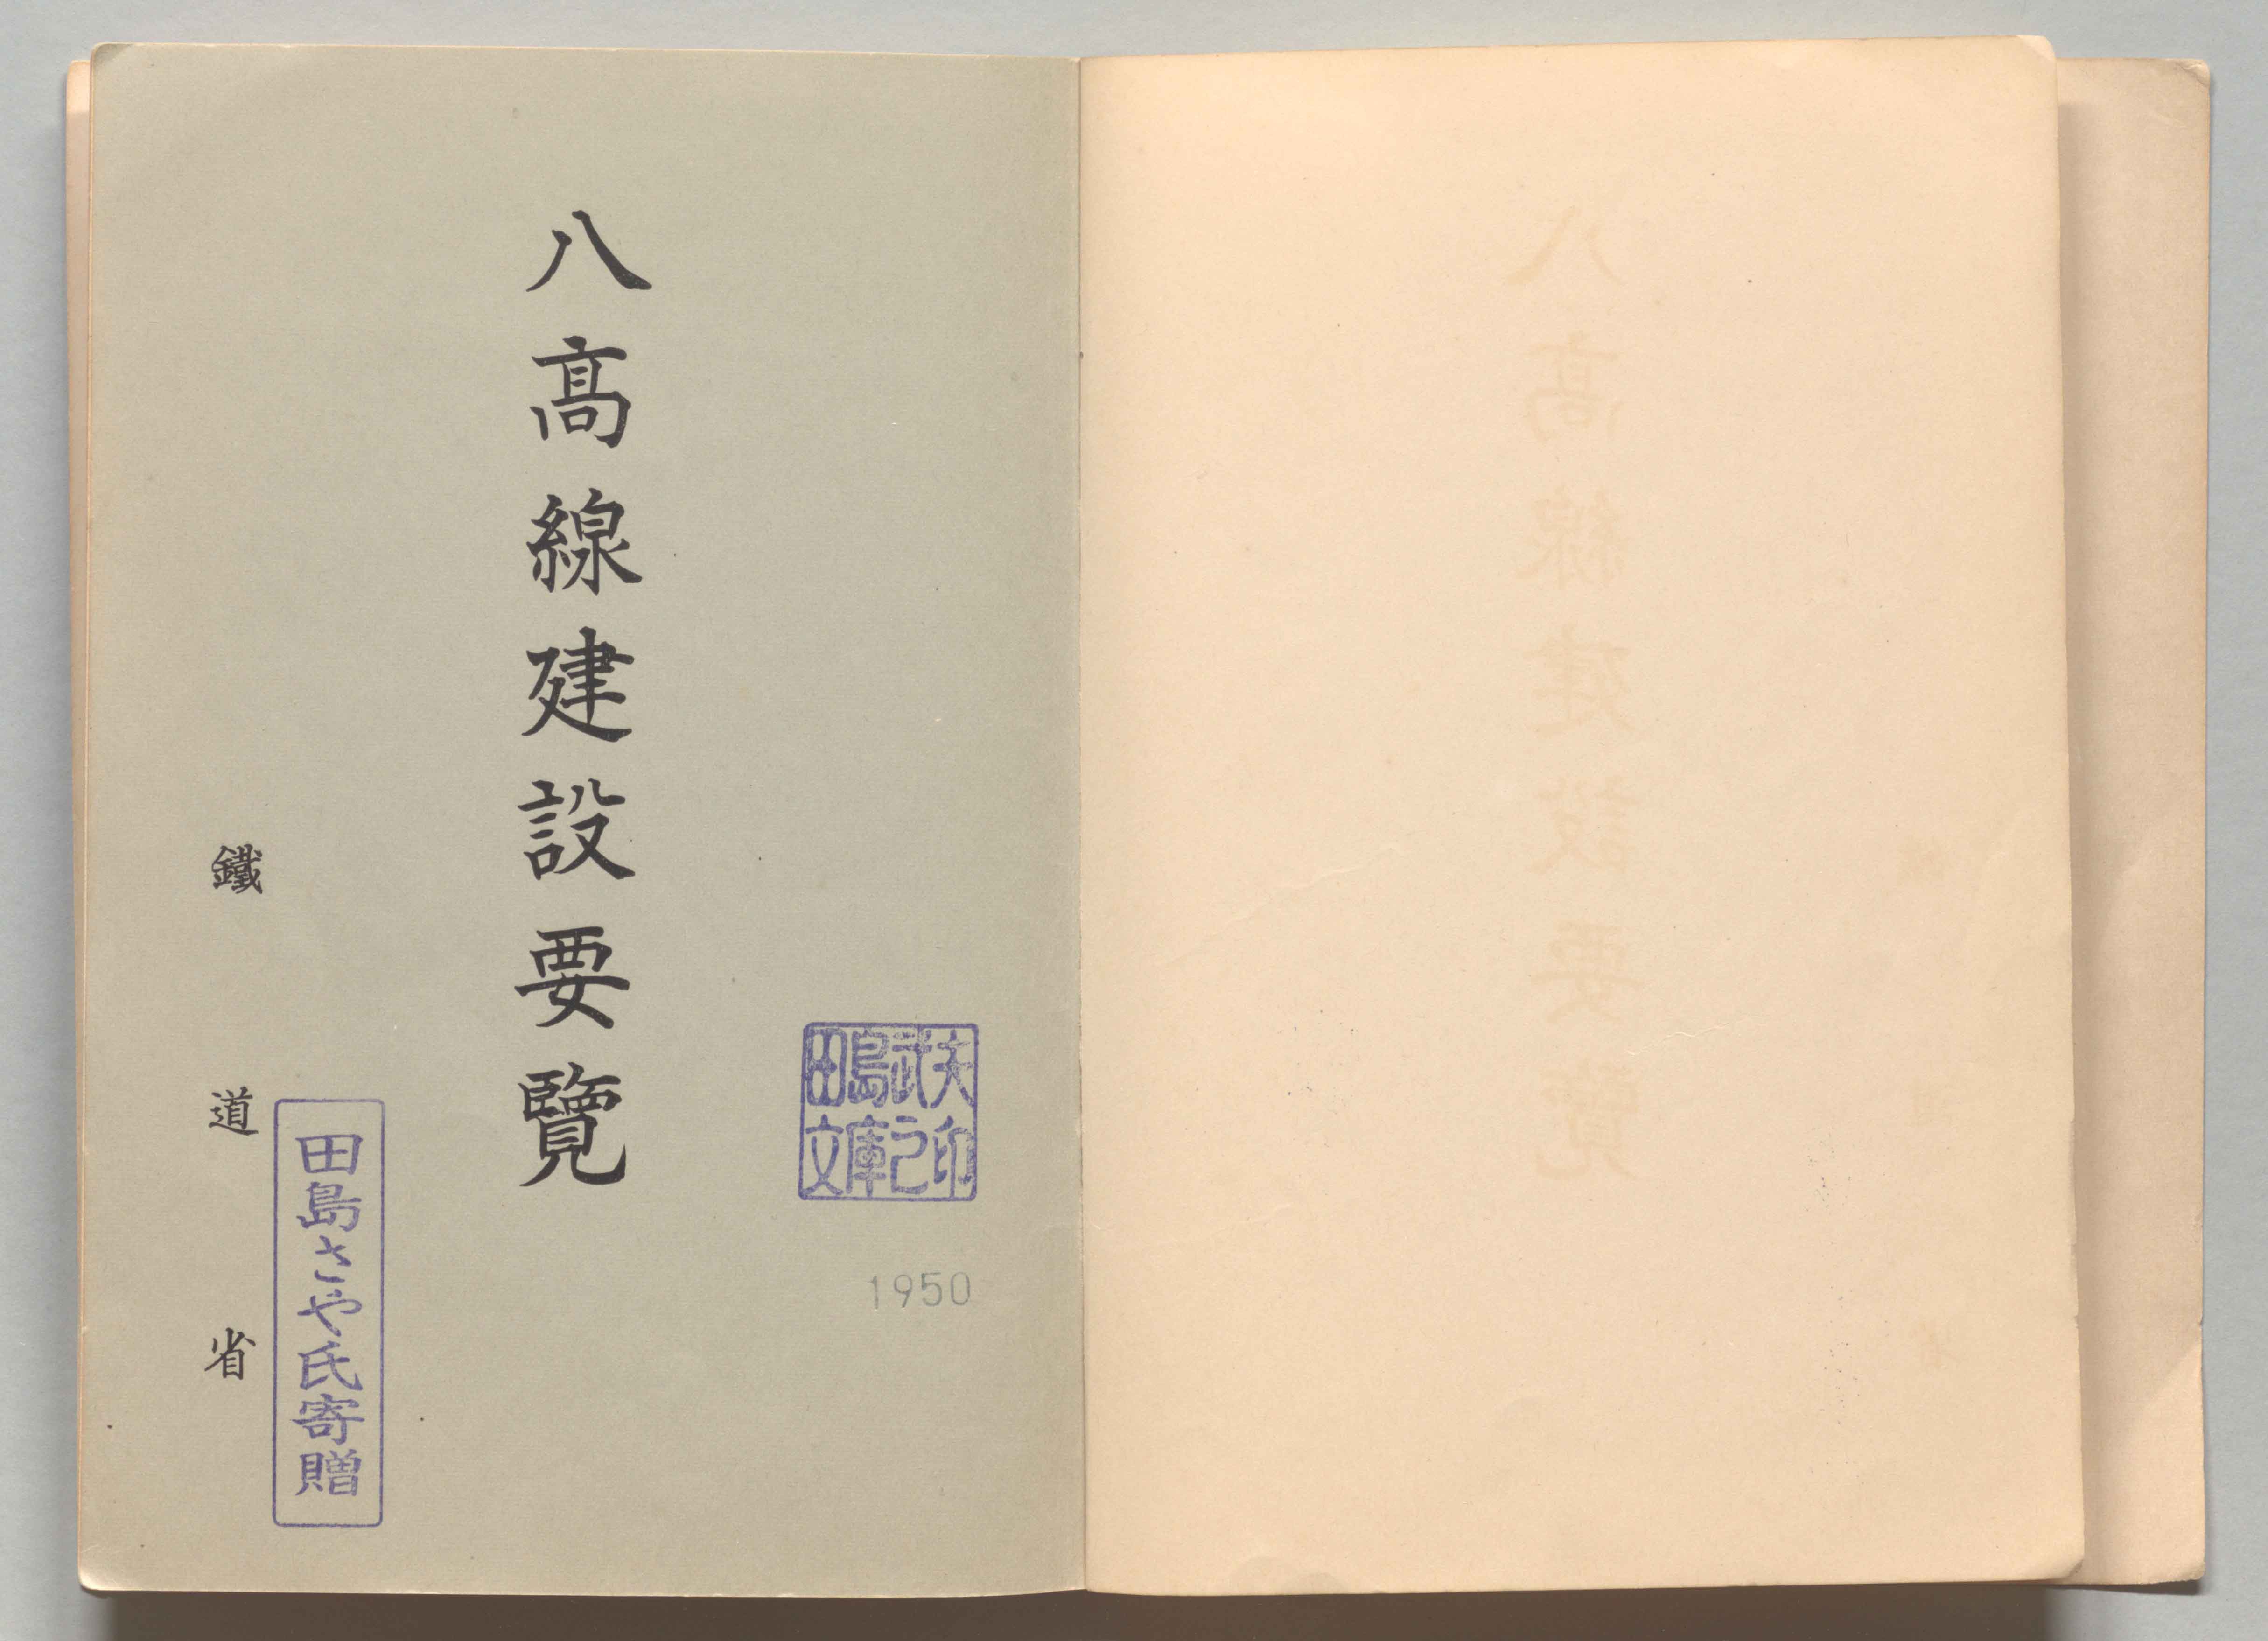 八髙線建設要覽
鐵道省
田島さや氏寄贈
田島武夫
文庫之印
1950